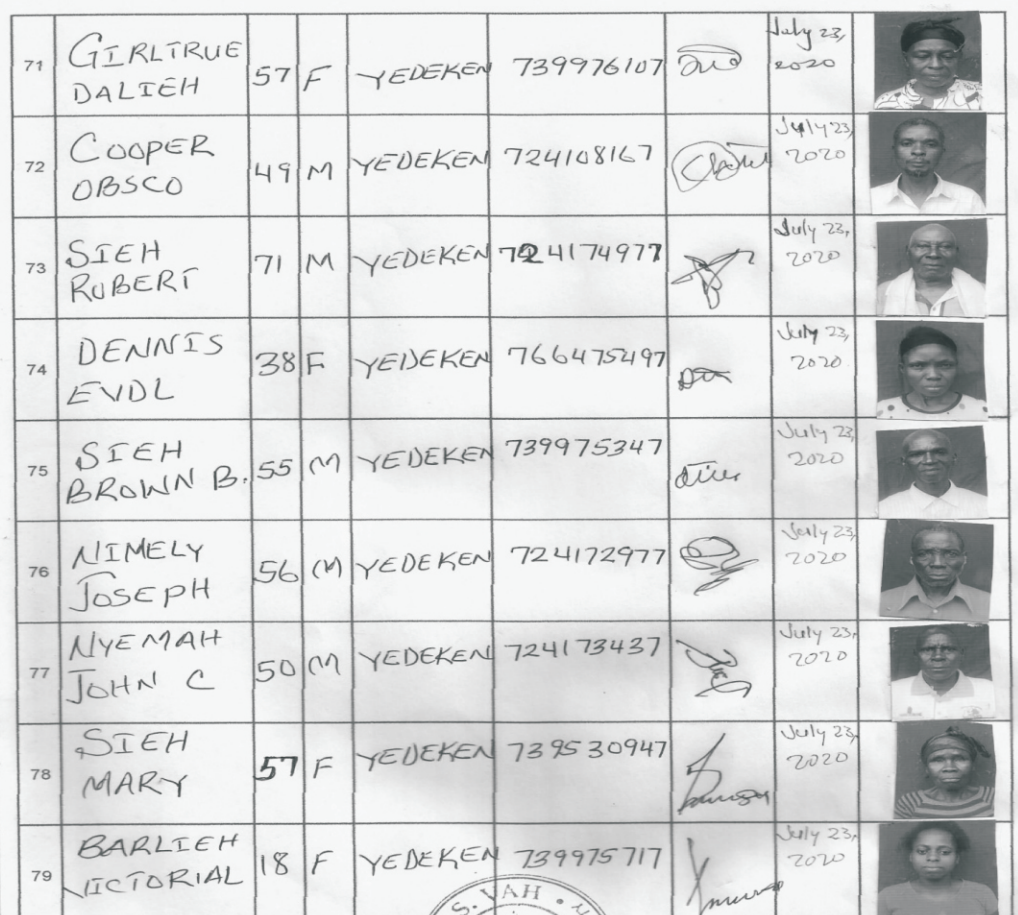 71 GIRLTRUE DALIEH 57 F YEDEKEN 739976107 July 23, 2020
72 COOPER OBSCO 49 M YEDEKEN 724108167 July 23, 2020
73 SIEH ROBERT 71 M YEDEKEN 724174977 July 23, 2020
74 DENNIS EVDL 38 F YEDEKEN 766475497 July 23, 2020
75 SIEH BROWN B. 55 M YEDEKEN 739975347 July 23, 2020
76 NIMELY JOSEPH 56 M YEDEKEN 724172977 July 23, 2020
77 NYEMAH JOHN C 50 M YEDEKEN 724173437 July 23, 2020
78 SIEH MARY 57 F YEDEKEN 739530947 July 23, 2020
79 BARLIEH VICTORIAL 18 F YEDEKEN 739975717 July 23, 2020
S. VAH